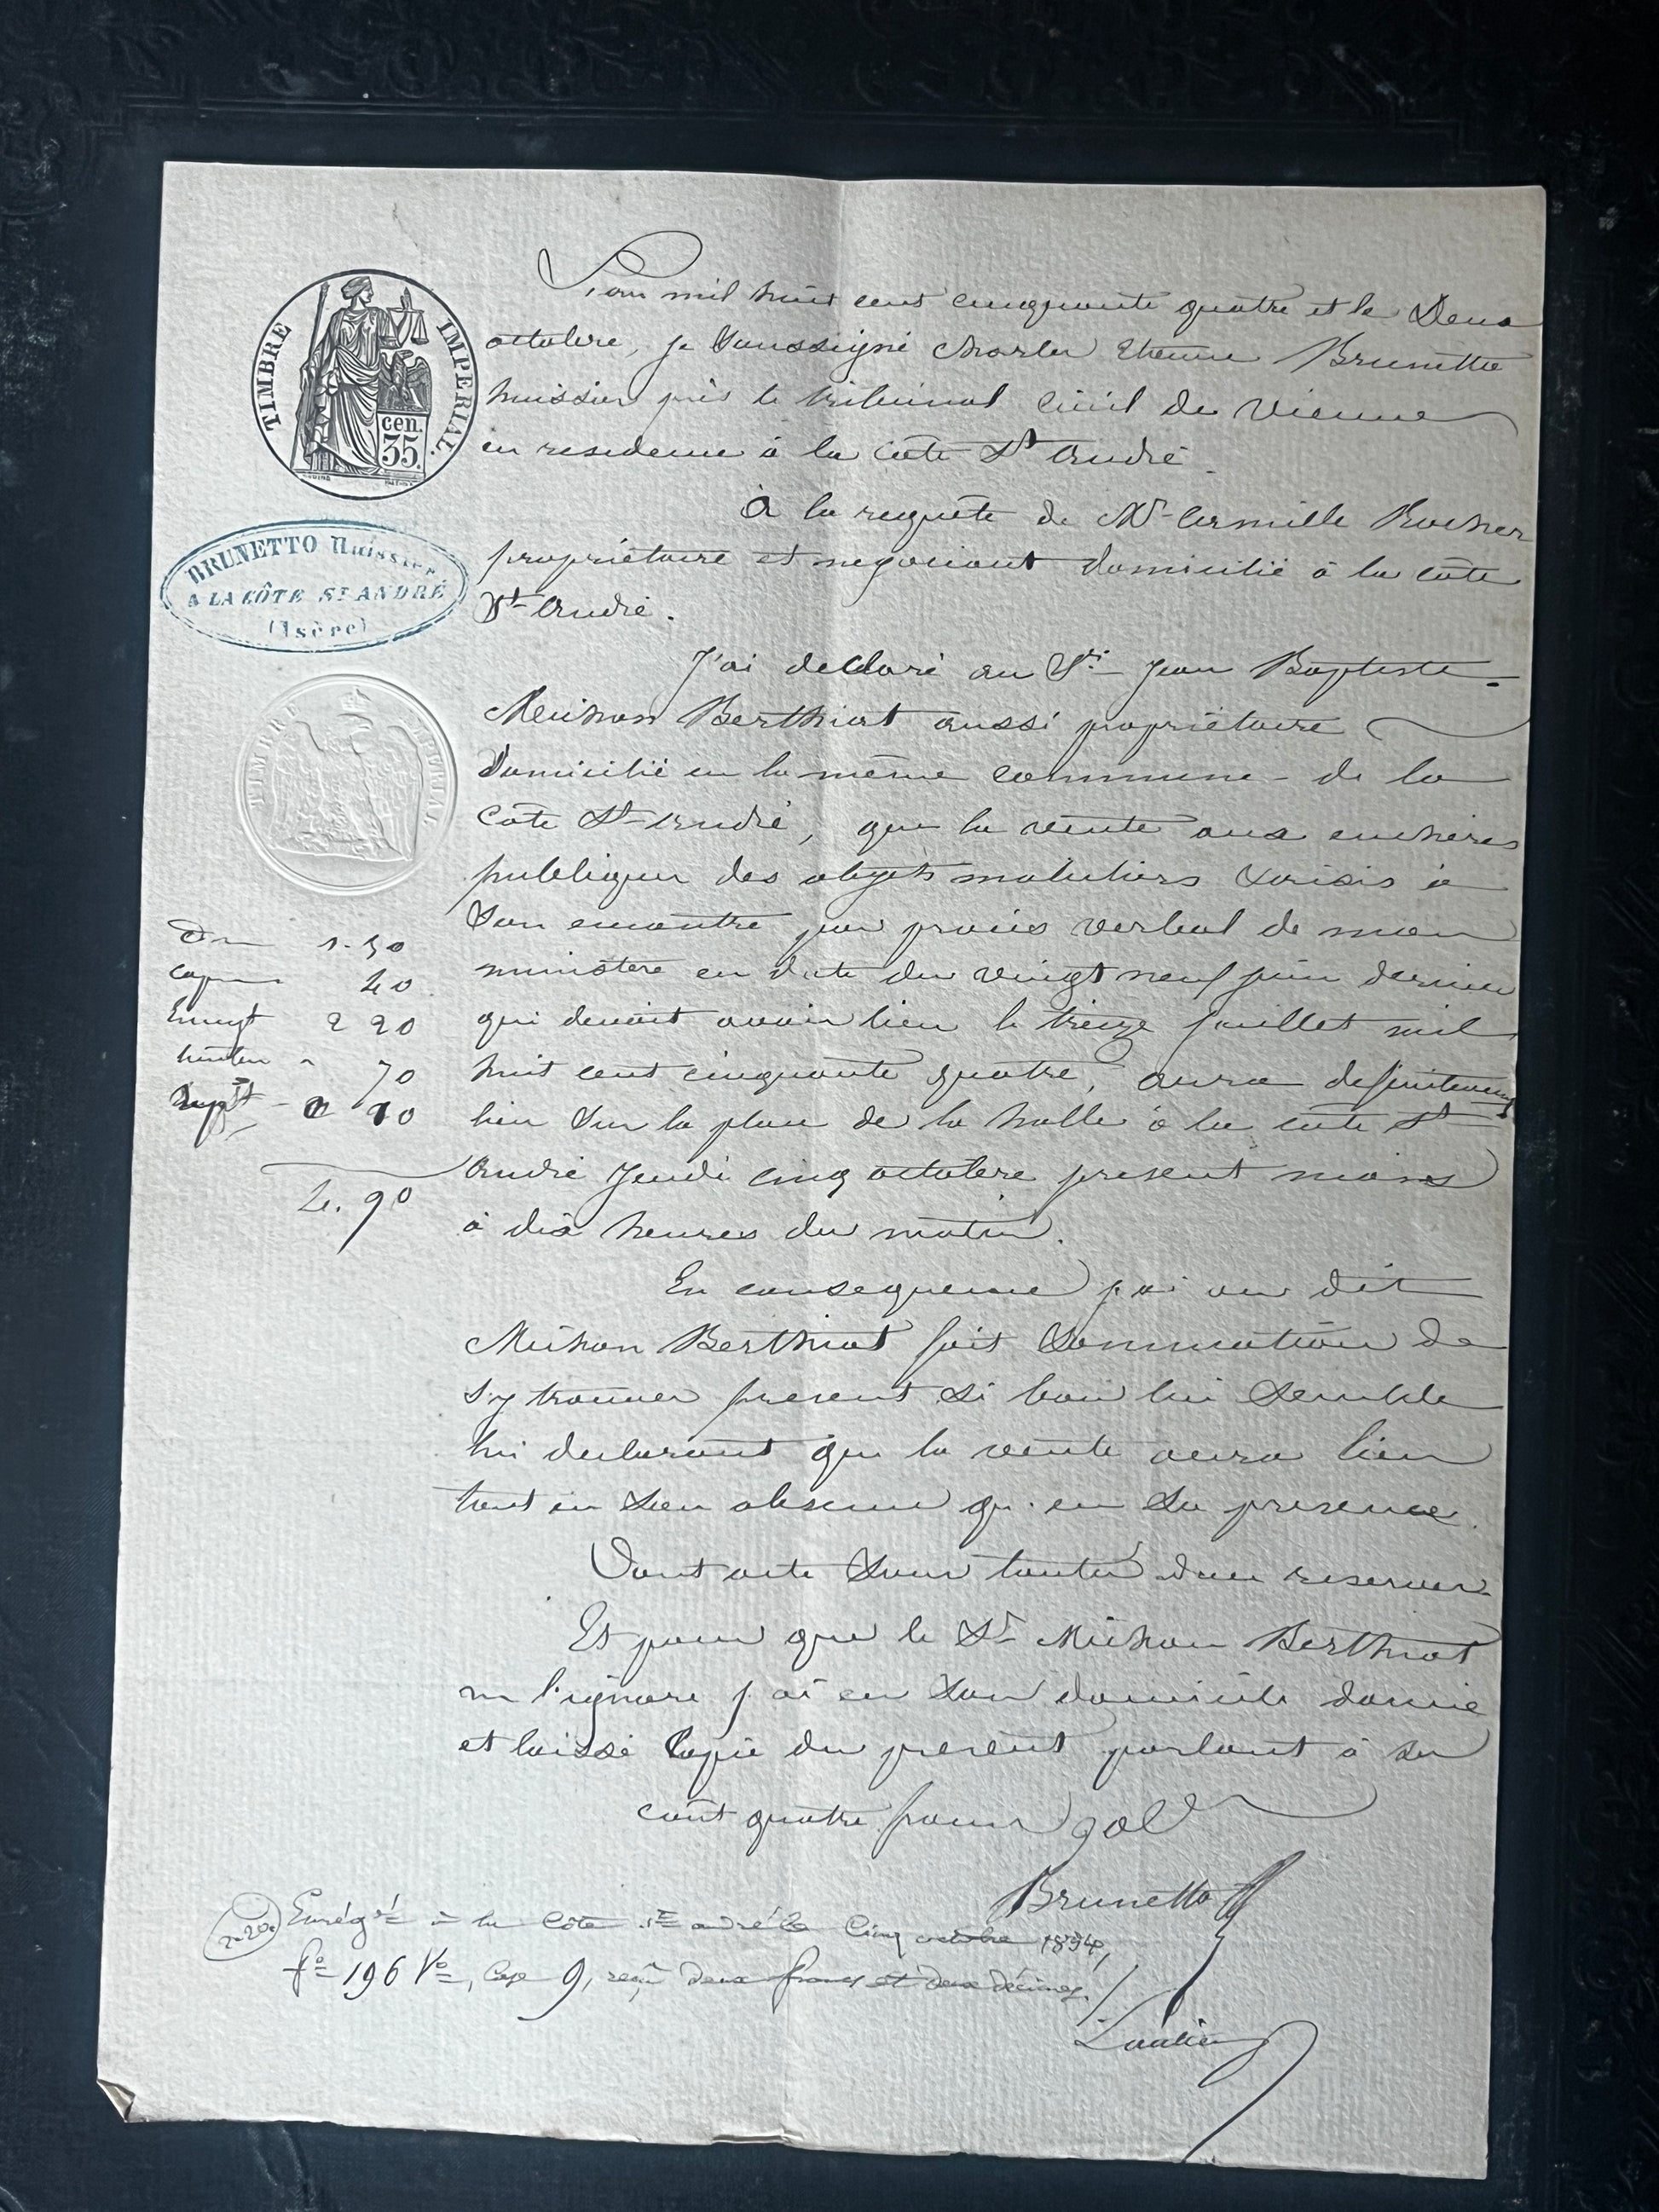 TIMBRE IMPERIAL.
cen. 35.
BRUNETTO Huissier
A LA CÔTE ST ANDRÉ
(Isère)
TIMBRE IMPERIAL
L'an mil huit cent cinquante quatre et le Deux
octobre, je soussigné Charles Etienne Brunetto
huissier près le tribunal civil de Vienne
en residence à la côte St André.
À la requête de Mr Camille Rocher
propriétaire et negociant domicilié à la côte
St André.
J'ai declaré au Sr Jean Baptiste
Meunon Berthiot aussi propriétaire
domicilié en la même commune de la
Côte St André, que la vente aux enchères
publiques des objets mobiliers saisis à
son encontre par procès verbal de mon
ministère en date du vingt neuf juin dernier
qui devait avoir lieu le treize juillet mil
huit cent cinquante quatre, aura definitivement
lieu sur la place de la halle à la côte St
André Jeudi cinq octobre présent mois
à dix heures du matin.
En consequence j'ai au dit
Berthiot fait sommation de
s'y trouver present si bon lui semble
lui declarant que la vente aura lieu
tant en son absence qu'en sa presence.
Dont acte sous toutes dues reserves
Et pour que le Sr Berthiot
ne l'ignore j'ai en son domicile donné
et laissé Copie du present parlant à sa
coût quatre francs 90c
Brunetto
1.50
copie 40
Enregt 2 20
70
10
4.90
2-20
Enregé à la Côte St andré le Cinq octobre 1854,
fo 196 Vo, Case 9, reçu deux francs et deux décimes.